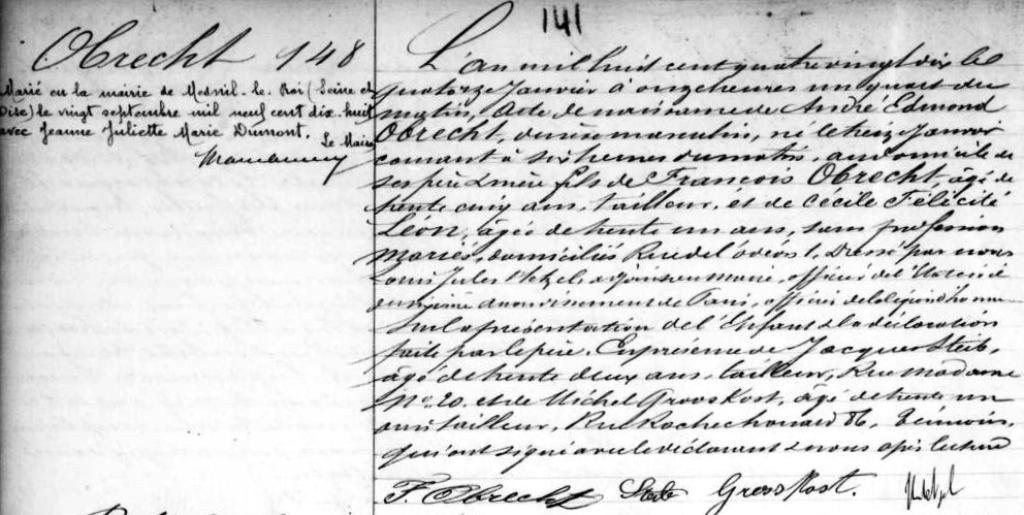 141
Obrecht 148
Marié en la mairie de Mesnil-le-Roi (Seine et
Oise) le vingt septembre mil neuf cent dix-huit
avec Jeanne Juliette Marie Dumont.
Le Maire
L'an mil huit cent quatre vingt dix le
quatorze Janvier à onze heures un quart du
matin, Acte de naissance de André Edmond
Obrecht, du sexe masculin, né le treize Janvier
courant à six heures du matin, au domicile de
ses père & mère fils de François Obrecht, âgé de
trente cinq ans, tailleur, et de Cécile Félicité
Léon, âgée de trente un ans, sans profession
mariés, domiciliés Rue de l'odéon 1, Dressé par nous
Louis Jules Hetzel, adjoint au maire, officier de l'Etat civil
du arrondissement de Paris, officier de la légion d'honneur
Sur la présentation de l'Enfant & la déclaration
faite par le père. En présence de Jacques Steb,
âgé de trente deux ans, tailleur, Rue Madame
No. 20. et de Michel Groos Kost, âgé de trente un
ans tailleur, Rue Rochechouart 86, témoins,
qui ont signé avec le déclarant & nous après lecture
F. Obrecht Steb Groos Kost. JHetzel